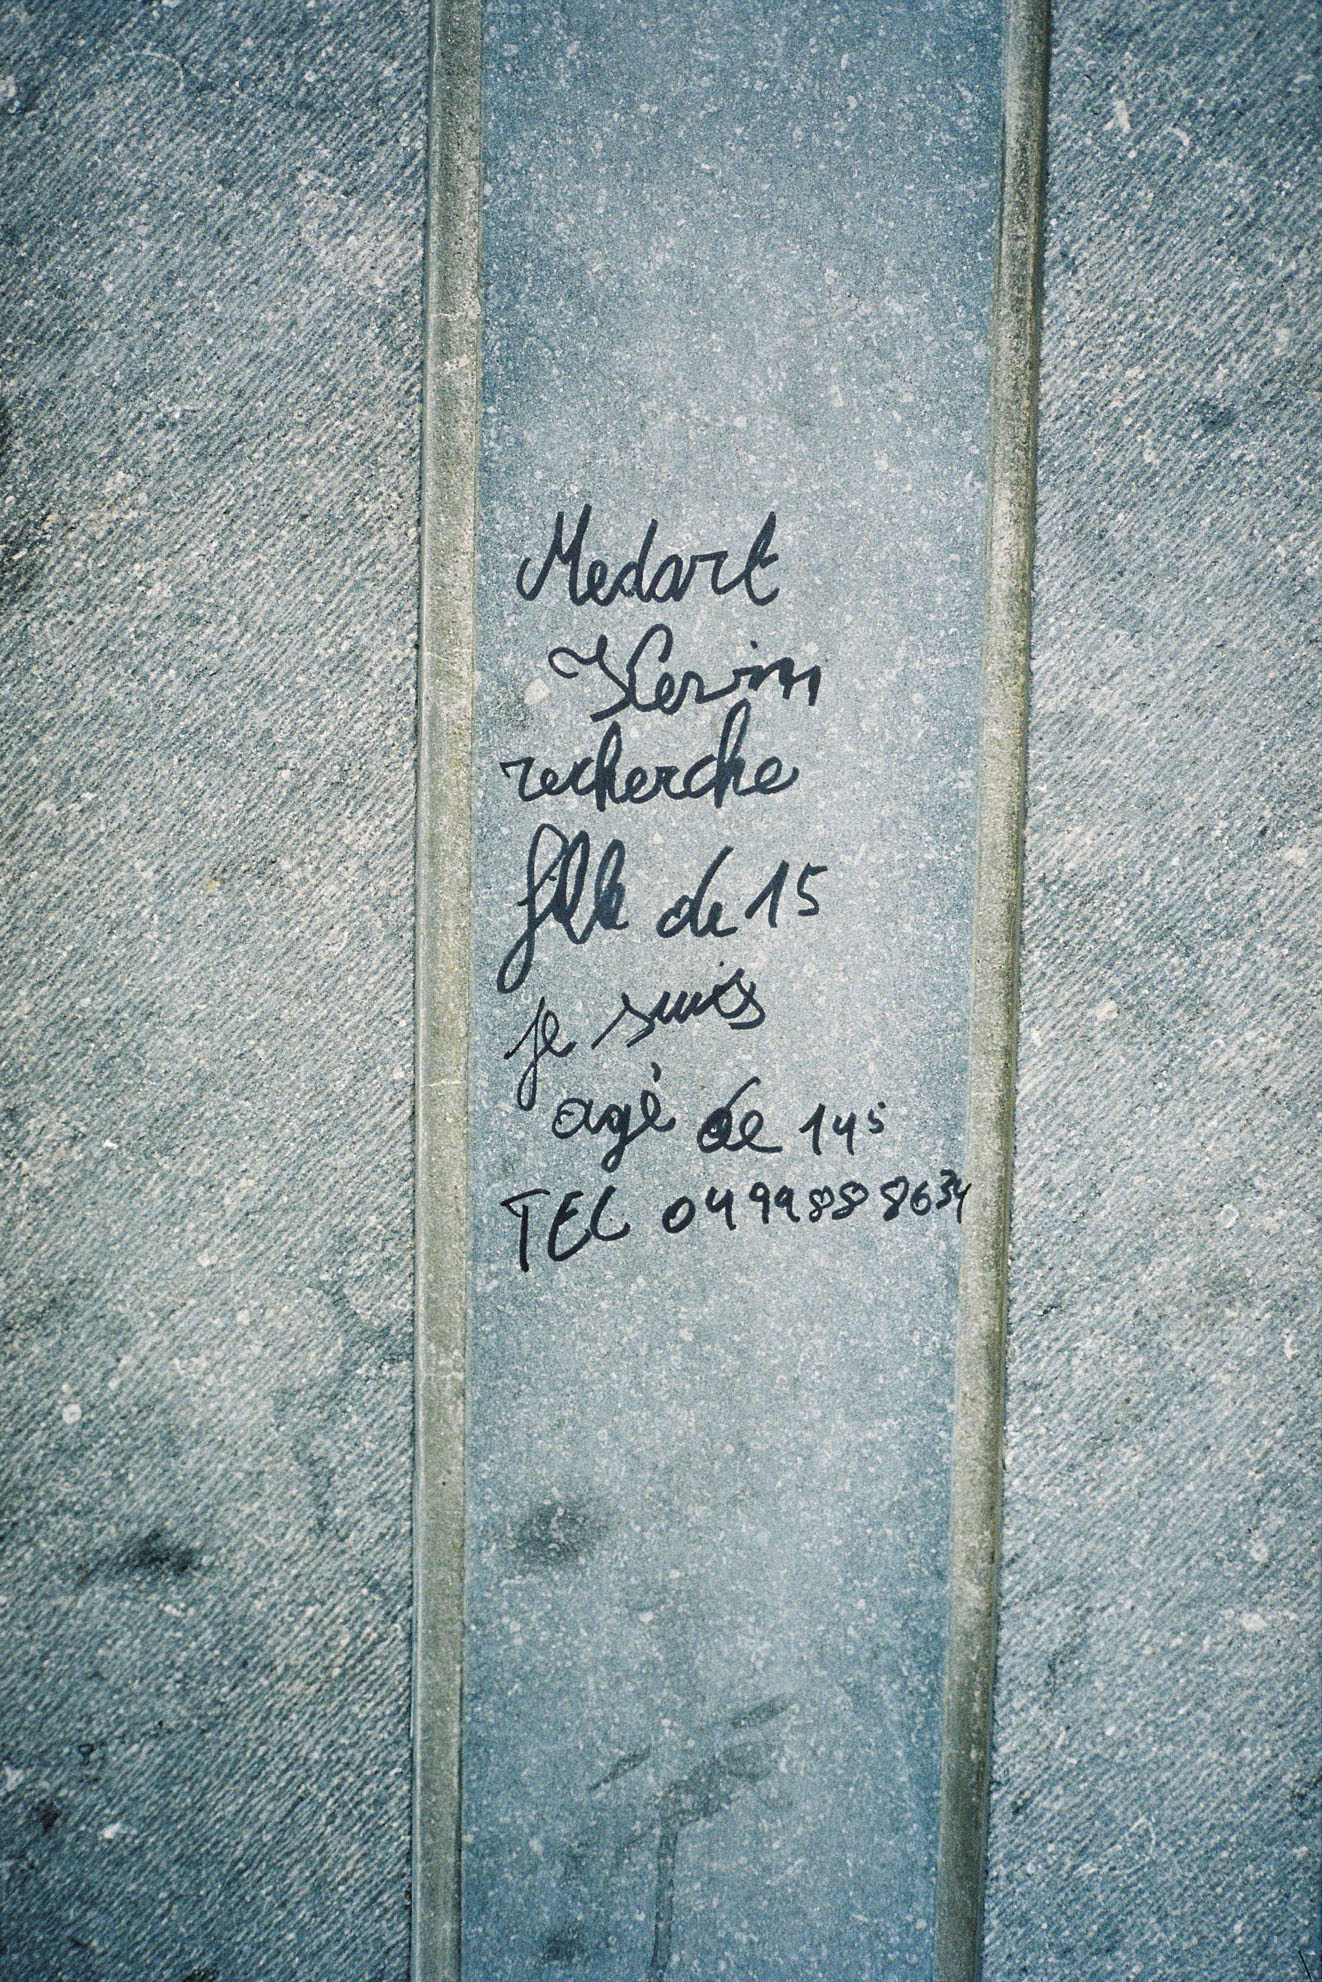 Medart
Kevin
recherche
fille de 15
je suis
agé de 14 5
TEL 0499888634